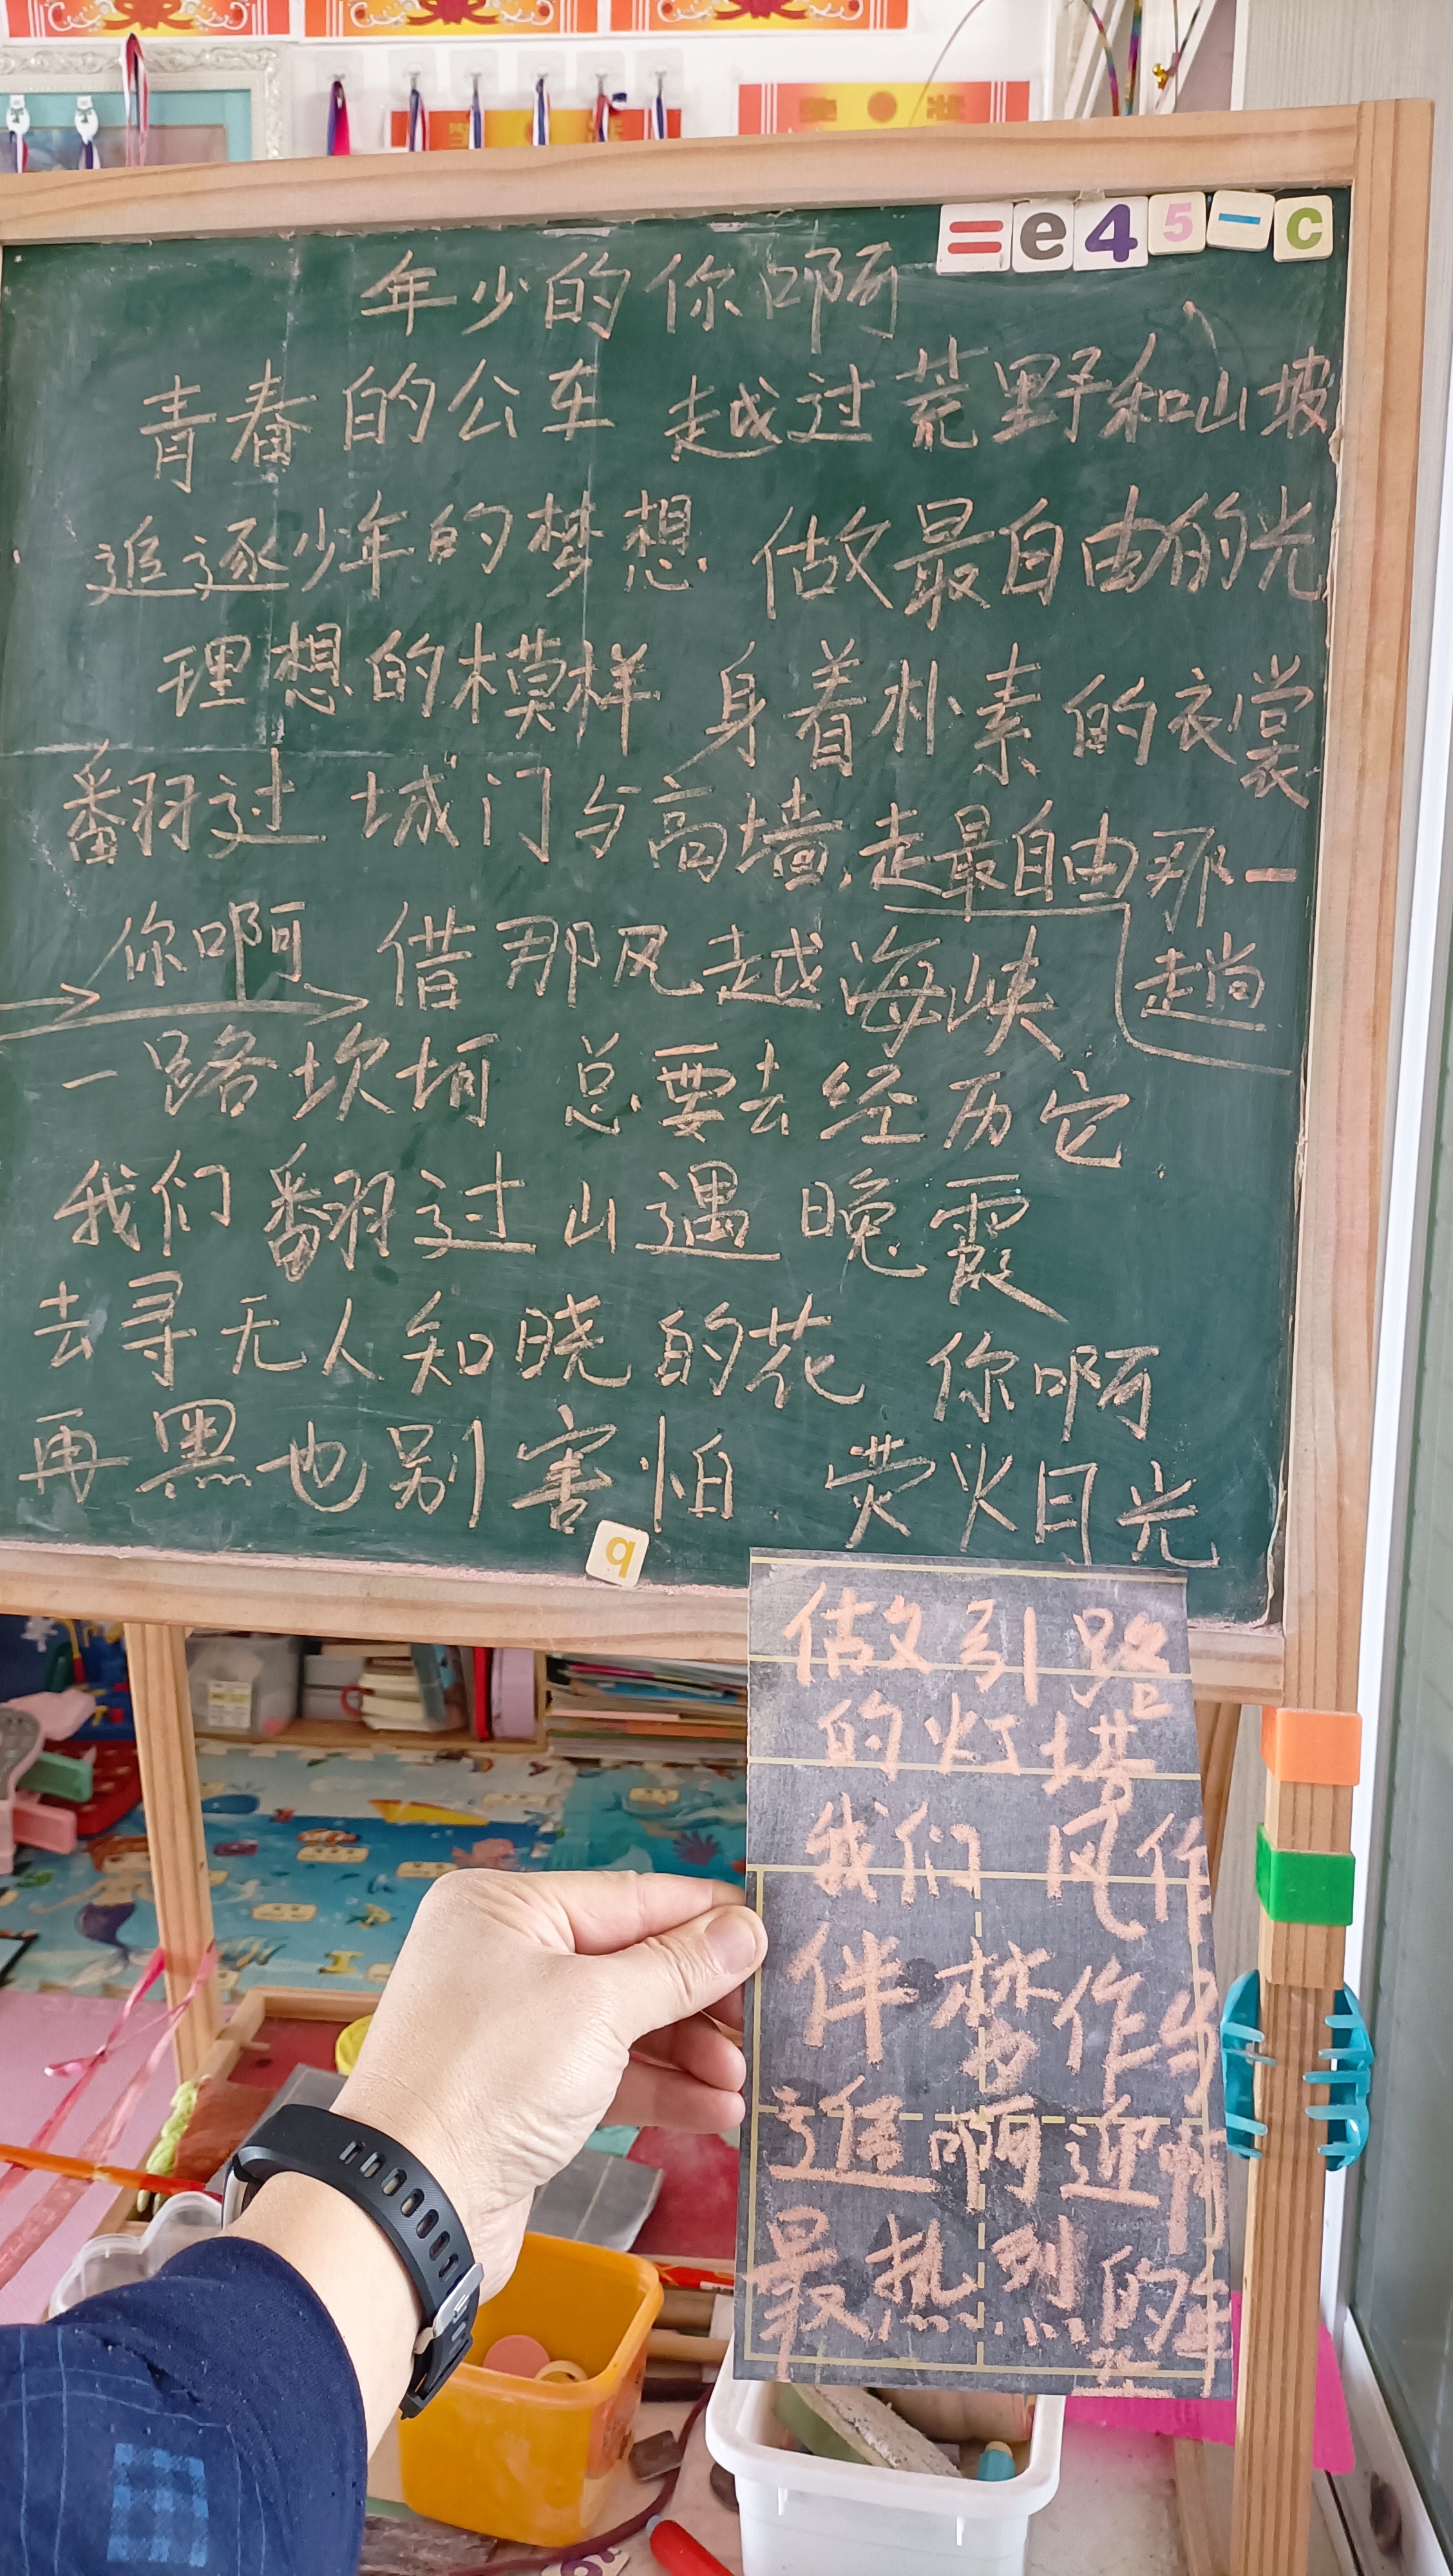 奖状
=e45-c
年少的你啊
青春的公车 越过荒野和山坡
追逐少年的梦想 做最自由的光
理想的模样 身着朴素的衣裳
翻过 城门与高墙,走最自由那一
趟
你啊 借那风越海峡
一路坎坷 总要去经历它
我们翻过山遇晚霞
去寻无人知晓的花 你啊
再黑也别害怕 荧火月光
q
做引路
的灯塔
我们 风作
伴梦作
这 啊 迎啊
最热烈的